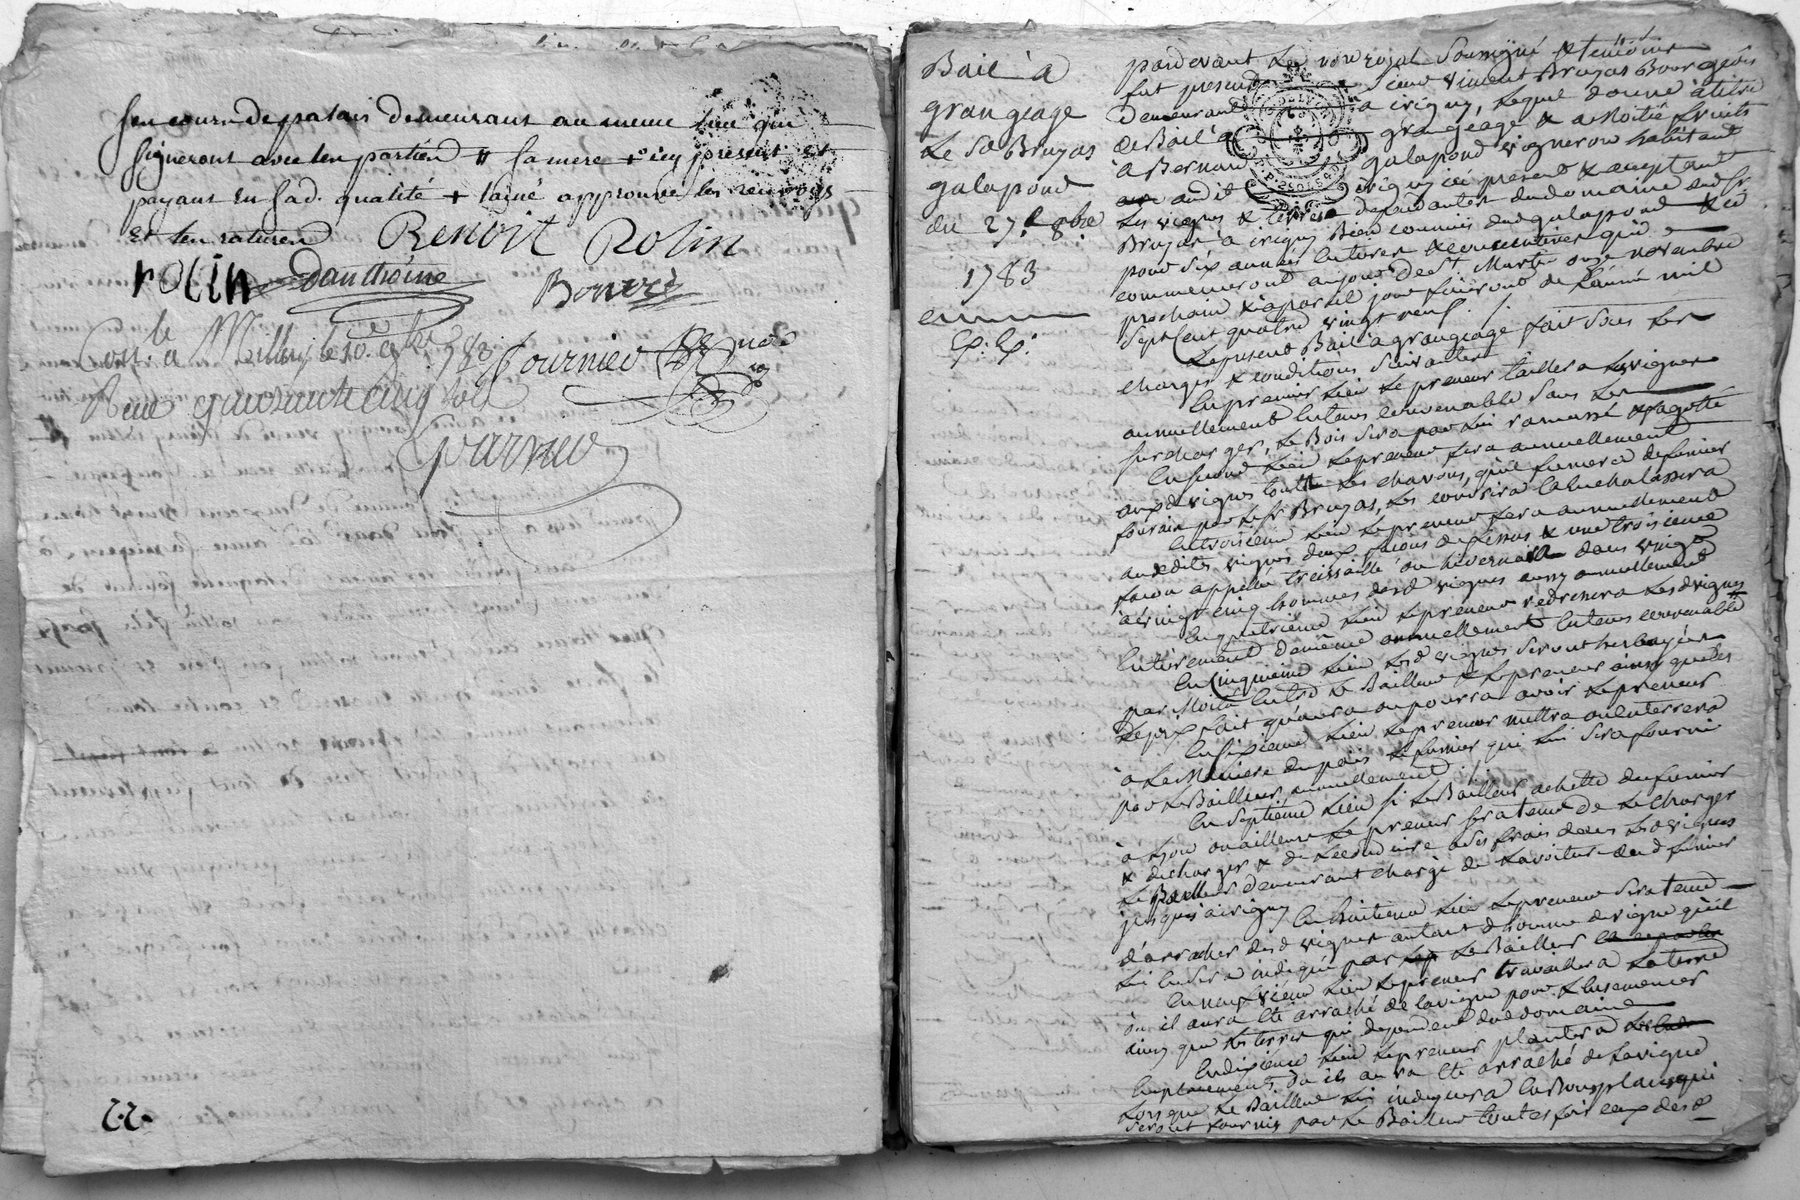 feu cour de palais demeurant au meme lieu qui
signeront avec les parties # sa mere + icy present et
payant en sad. qualité + layné approuvé les renvoys
et les ratures
Benoit Rolin
rolin danthoine Bonnet
Con.lé a Millery le 10.e 9bre 1783
Reçu quarante cinq sols
Fournier
Bail à
grangeage
Le Sr Bruyas
galapond
du 27.e 8bre
1783
Pardevant Le no.re royal soussigné & temoins
fut present Sieur vincent Bruyas Bourgeois
demeurant à irigny, lequel donne à titre
de Bail à grangéage & à Moitié fruits
à Bernard galapond vigneron habitant
audit irigny ici present & acceptant
Les vignes & terres dependantes du domaine dud. Sr
Bruyas à irigny Bien connuis dud. galapond & ce
pour six années entieres & consecutives qui
commenceront au jour de St Martin onze novembre
prochain & à pareil jour finiront de l'année mil
sept Cent quatre vingt neuf.
Le present Bail à grangeage fait sous les
charges & conditions suivantes
En premier lieu Le preneur taillera Les vignes
annuellement en tems convenable sans Les
surcharger, Le Bois sera par lui ramassé & fagotté
En second lieu Le preneur fera annuellement
auxd. vignes toutes les chavons, qu'il fumera de fumier
fourni par Led. Sr Bruyas, Les couvrira & enchalassera
En troisieme lieu Le preneur fera annuellement
auxdites vignes deux façons de fessus & une troisieme
façon appellée treissaille ou hivernaille dans vingt
à vingt cinq hommes desd. vignes aussy annuellement
En quatrieme lieu Le preneur redressera Lesd. vignes
entierement de même annuellement en tems convenable
En Cinquieme lieu Lesd. vignes seront herbagées
par Moitié entre Le Bailleur & Le preneur ainsy que les
En sixieme lieu Le preneur mettra ou enterrera
à La Maniere du païs Le fumier qui lui sera fourni
par Le Bailleur annuellement
En septieme lieu si Le Bailleur achette du fumier
à Lyon ou ailleurs Le preneur sera tenu de Le Charger
& decharger & de Le conduire à ses frais dans Lesd. vignes
Le Bailleur demeurant chargé de La voiture dud. fumier
jusques à irigny
En huitieme lieu Le preneur sera tenu
d'arracher desd. vignes autant d'homme de vigne qu'il
lui en sera indiqué par Le Bailleur
En neufvieme lieu Le preneur travaillera La terre
où il aura été arraché de la vigne pour L'ensemencer
ainsy que Les terres qui dependent dud. domaine
En dixieme lieu Le preneur plantera
Emplacements où il aura été arraché de La vigne
Lorsque Le Bailleur lui indiquera
seront fournis par Le Bailleur toutes fois ceux desd.